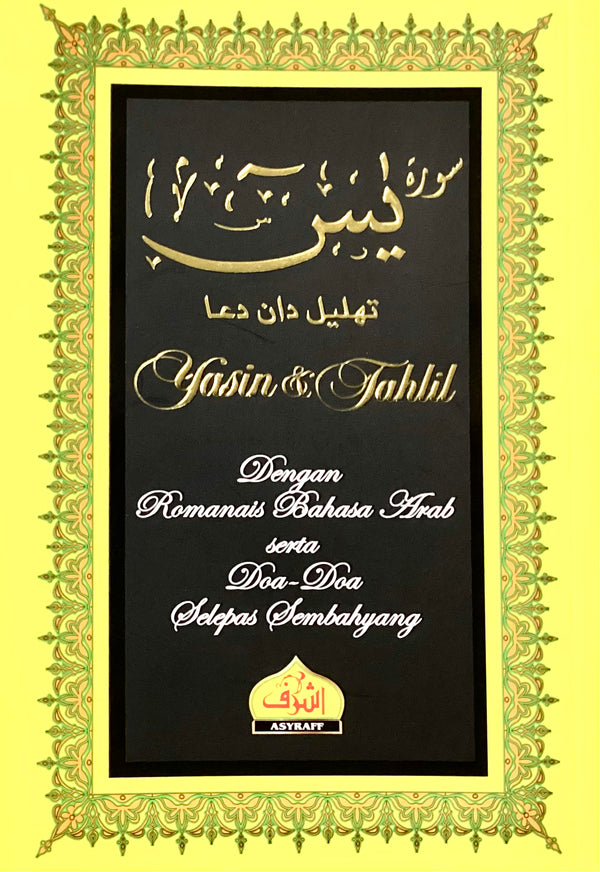 سورة يس
تهليل دان دعا
Yasin & Tahlil
Dengan
Romanais Bahasa Arab
serta
Doa-Doa
Selepas Sembahyang
اشرف
ASYRAFF